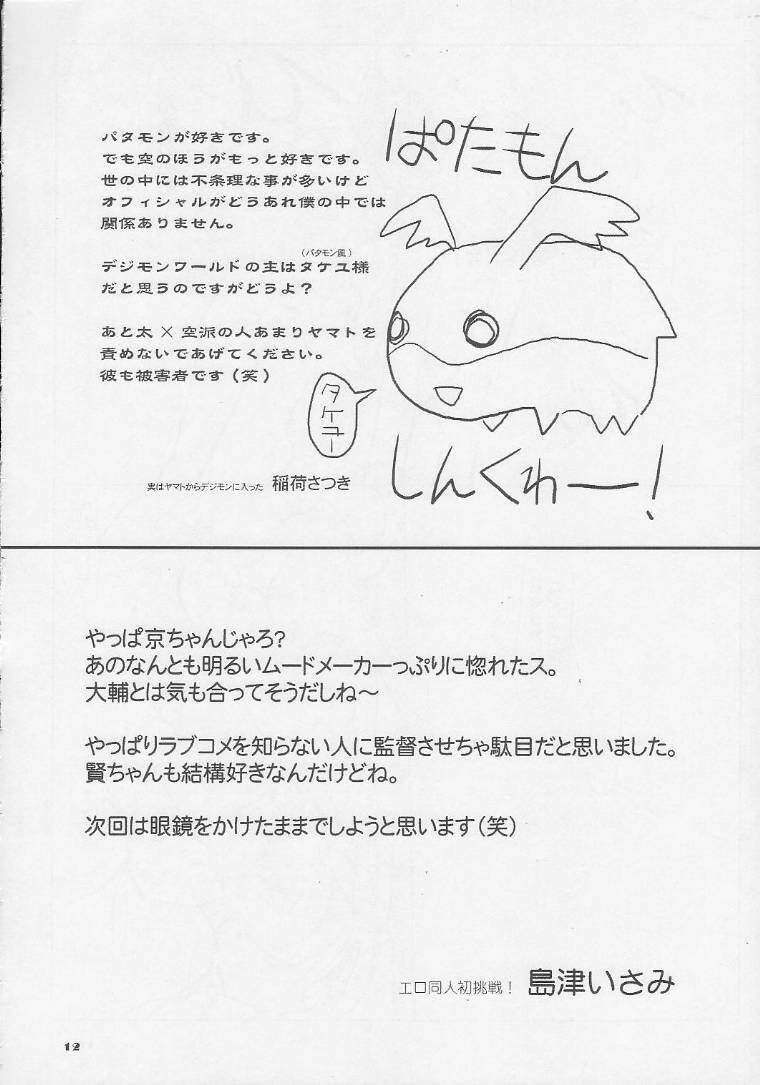 パタモンが好きです。
でも空のほうがもっと好きです。
世の中には不条理な事が多いけど
オフィシャルがどうあれ僕の中では
関係ありません。
(パタモン風)
デジモンワールドの主はタケユ様
だと思うのですがどうよ?
あと太×空派の人あまりヤマトを
責めないであげてください。
彼も被害者です(笑)
実はヤマトからデジモンに入った 稲荷さつき
ぱたもん
タケユー
しんくわー!
やっぱ京ちゃんじゃろ?
あのなんとも明るいムードメーカーっぷりに惚れたス。
大輔とは気も合ってそうだしね〜
やっぱりラブコメを知らない人に監督させちゃ駄目だと思いました。
賢ちゃんも結構好きなんだけどね。
次回は眼鏡をかけたままでしようと思います(笑)
エロ同人初挑戦! 島津いさみ
12